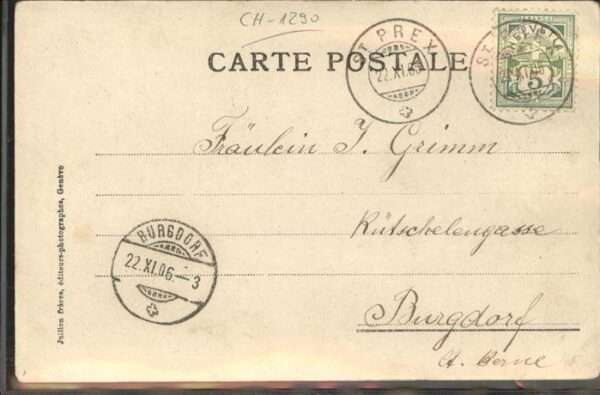 CH-1290
CARTE POSTALE
ST PREX
22.XI.06
ST.
HELVETIA
5
Fräulein J. Grimm
Rütschelengasse
Burgdorf
Ct. Berne
BURGDORF
22.XI.06.-3
Jullien Frères, éditeurs-photographes, Genève